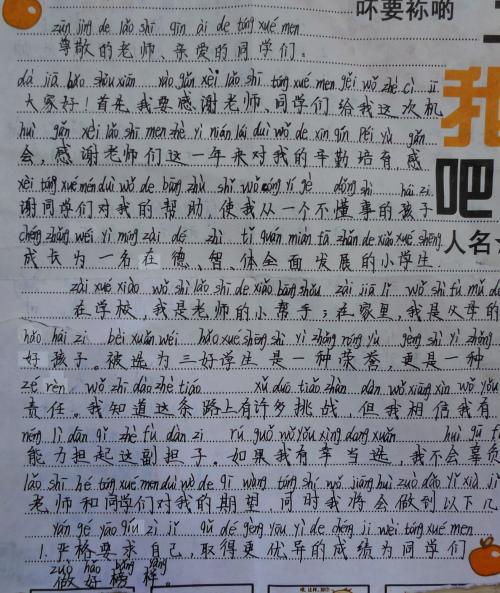 吥要袮啲
zūn jìng de lǎo shī qīn ài de tóng xué men
尊敬的老师、亲爱的同学们。
dà jiā hǎo shǒu xiān wǒ yào gǎn xiè lǎo shī tóng xué men gěi wǒ zhè cì jī
大家好！首先我要感谢老师、同学们给我这次机
huì gǎn xiè lǎo shī men zhè yì nián lái duì wǒ de xīn qín péi yù gǎn
会，感谢老师们这一年来对我的辛勤培育，感
xiè tóng xué men duì wǒ de bāng zhù shǐ wǒ cóng yí gè dǒng shì hái zi
谢同学们对我的帮助，使我从一个不懂事的孩子
chéng zhǎng wéi yì míng zài dé zhì tǐ quán miàn fā zhǎn de xiǎo xué shēng
成长为一名在德、智、体全面发展的小学生.
zài xué xiào wǒ shì lǎo shī de xiǎo bāng shǒu zài jiā lǐ wǒ shì fù mǔ de
在学校，我是老师的小帮手；在家里，我是父母的
hǎo hái zi bèi xuǎn wéi hǎo xué shēng shì yì zhǒng róng yù gèng shì yì zhǒng
好孩子。被选为三好学生是一种荣誉，更是一种
zé rèn wǒ zhī dào zhè tiáo xǔ duō tiǎo zhàn dàn wǒ xiāng xìn wǒ yǒu
责任。我知道这条路上有许多挑战，但我相信我有
néng lì dān qǐ zhè fù dàn zi rú guǒ wǒ yǒu xìng dāng xuǎn huì gū f
能力担起这副担子。如果我有幸当选，我不会辜负
lǎo shī hé tóng xué men duì wǒ de qī wàng tóng shí wǒ jiāng huì zuò dào yǐ xià jǐ
老师和同学们对我的期望，同时我将会做到以下几
yán gé yāo qiú zì jǐ qǔ dé gèng yōu yì de chéng jì wèi tóng xué men
1.严格要求自己，取得更优异的成绩为同学们
zuò hǎo bǎng yàng
做好榜样。
我
吧
人名